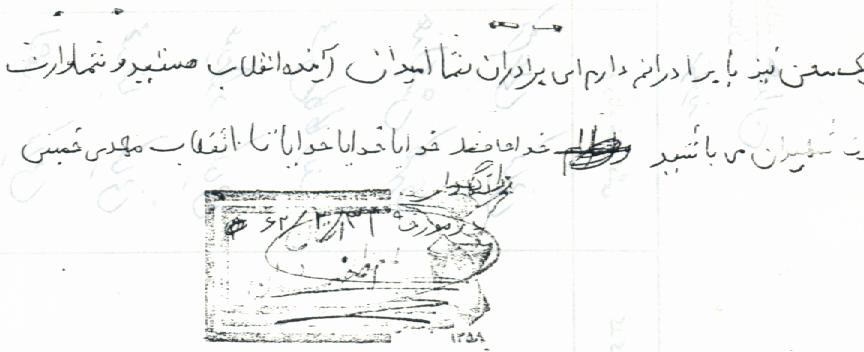 یک سخن نیز با برادرانم دارم ای برادران شما امیدان آینده انقلاب هستید و شما وارث
شهیدان می باشید خداحافظ خدایا خدایا خدایا تا انقلاب مهدی خمینی
را نگهدار
۱۳۵۸